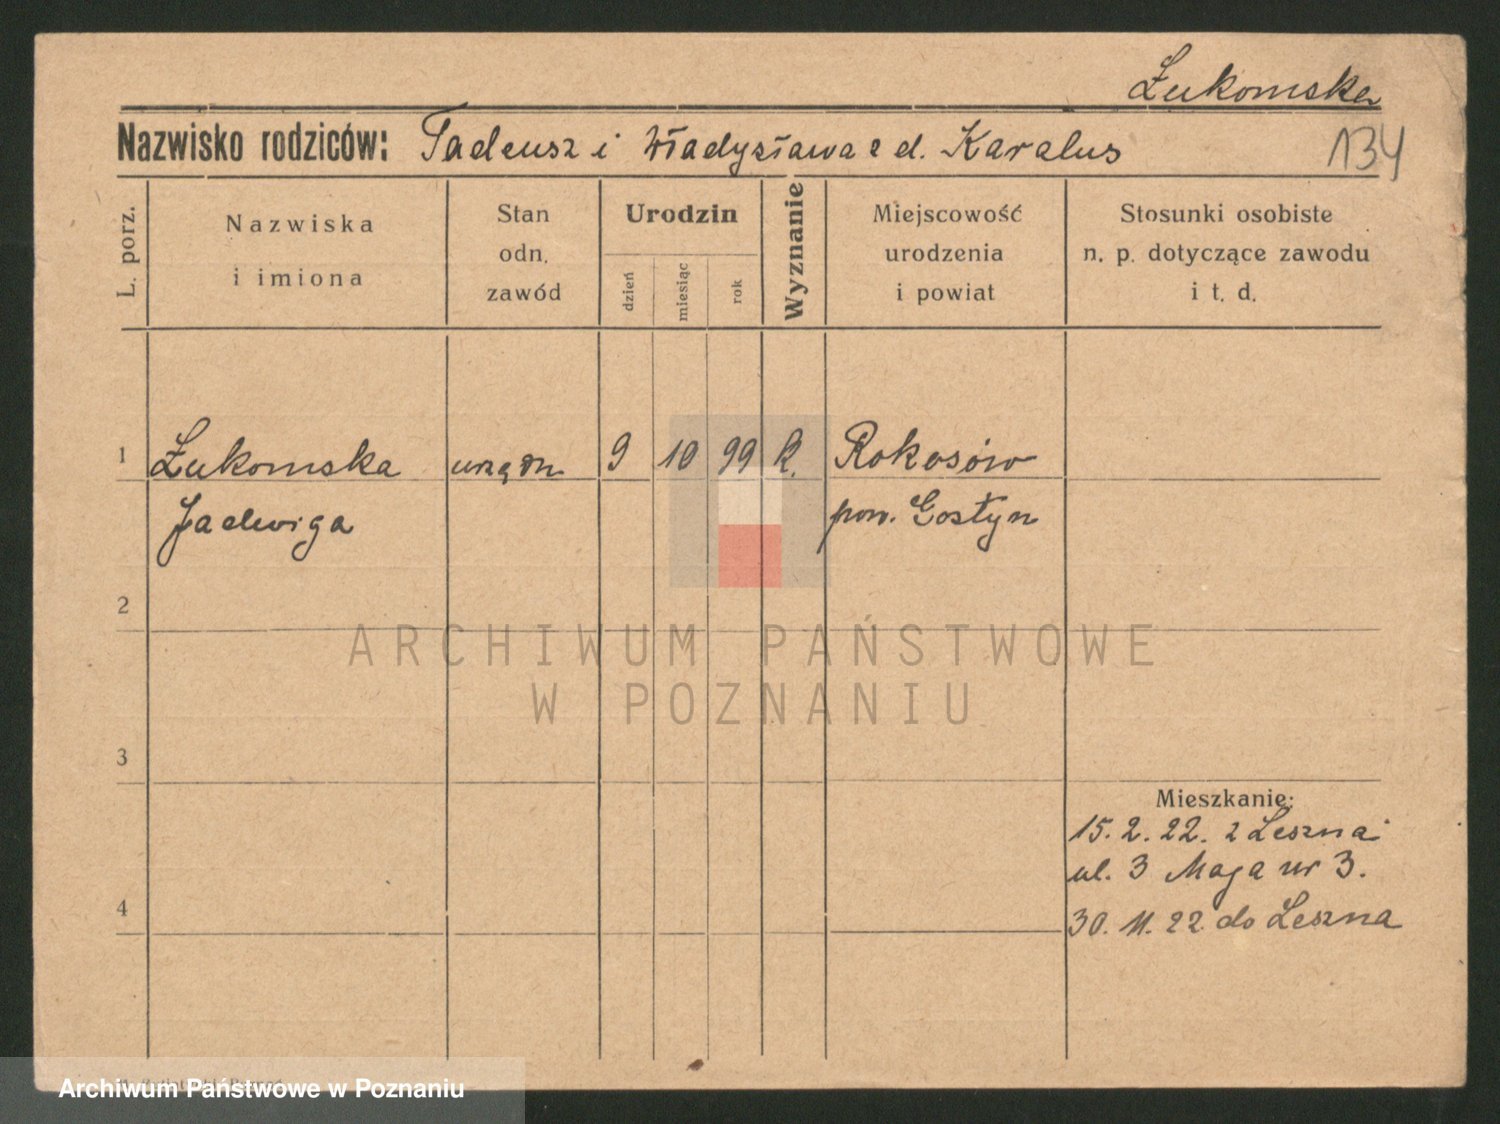 Łukomska
Nazwisko rodziców: Tadeusz i Władysława z d. Karalus
134
L. porz.
Nazwiska
i imiona
Stan
odn.
zawód
Urodzin
dzień
miesiąc
rok
Wyznanie
Miejscowość
urodzenia
i powiat
Stosunki osobiste
n. p. dotyczące zawodu
i t. d.
1 Łukomska urzędn 9 10 99 k. Rokosów
Jadwiga pow. Gostyn
2
ARCHIWUM PAŃSTWOWE
W POZNANIU
3
Mieszkanie:
15. 2. 22. z Leszna
ul. 3 Maja nr 3.
4
30. 11. 22 do Leszna
Archiwum Państwowe w Poznaniu